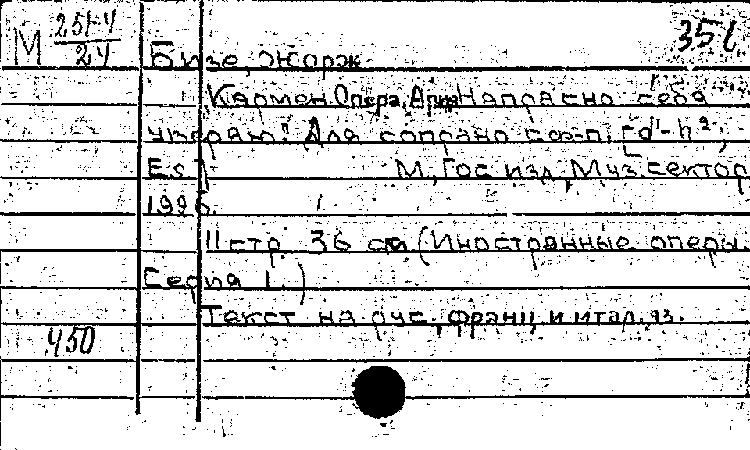 М 251-4/24
35 г.
Бизе, Жорж.
Кармен. Опера. Ария "Напрасно себя
уверяю". Для сопрано с ф-п. [d'-h²;
Es]
М., Гос. изд., Муз. сектор
1926.
11 стр. 36 см (Иностранные оперы.
Серия 1.)
Текст на рус., франц. и итал. яз.
450